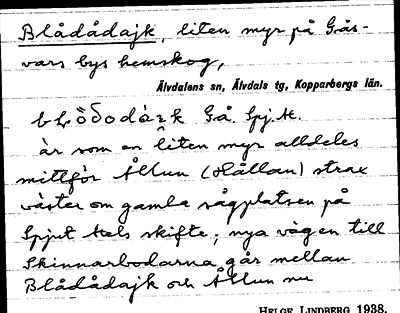 Blådådajk, liten myr på Gås-
vars bys hemskog,
Älvdalens sn, Älvdals tg, Kopparbergs län.
Gå. Spj. M.
är som en liten myr alldeles
mittför Ållun (Hållan) strax
väster om gamla sågplatsen på
Spjut Mels skifte; nya vägen till
Skinnarbodarna går mellan
Blådådajk och Ållun nu
HELGE LINDBERG 1938.